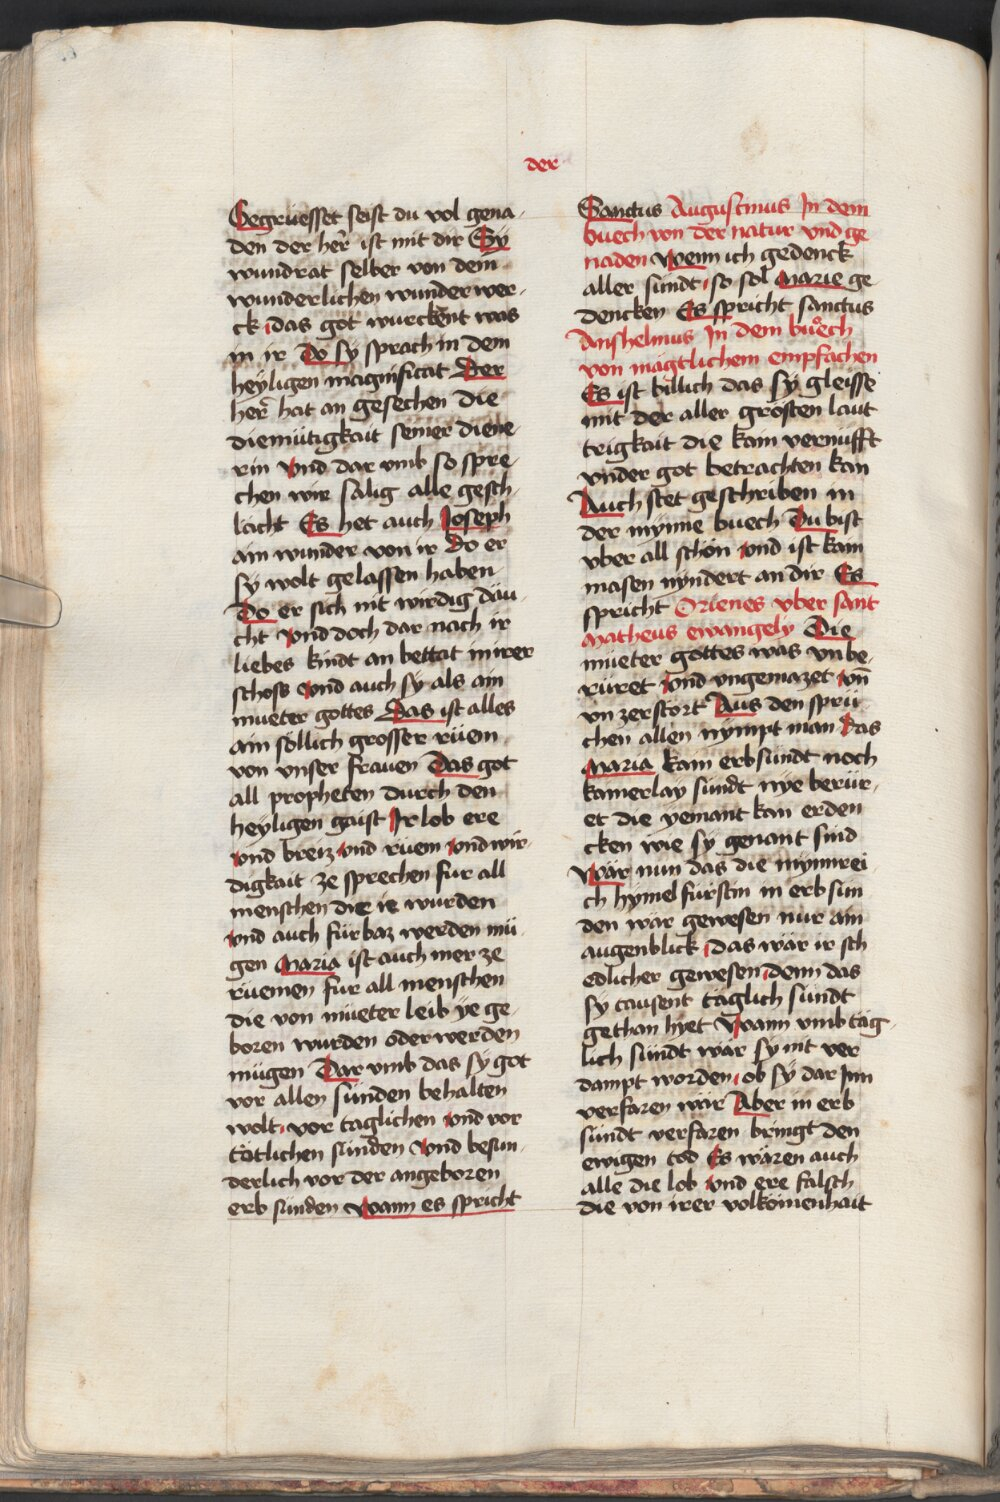 der
Gegruesset seist du vol gena-
den der her̄ ist mit dir Sÿ
wundrat selber von dem
wunderlichen wunder wer-
ck das got wurckent was
in ir Do sÿ sprach in dem
heÿligen magnificat Der
her̄ hat an gesechen die
diemütigkait seiner diene-
rin vnd dar vmb so spre-
chen wir sälig alle gesch-
lächt Es het auch Joseph
ain wunder von ir Do er
sÿ wolt gelassen haben
Do er sich nit wirdig däu-
cht vnd doch dar nach ir
liebes kindt an bettat in irer
schoss vnd auch sÿ als ain
mueter gottes Das ist alles
ain söllich grosser rüem
von vnser frauen Das got
all propheten durch den
heÿligen gaist Ir lob ere
vnd breiz vnd rüem vnd wir-
digkait ze sprechen für all
menschen die ie wurden
vnd auch für baz werden mü-
gen Maria ist auch mer ze
rüemen für all menschen
die von müeter leib ÿe ge-
boren wurden oder werden
mügen Dar vmb das sÿ got
vor allen sünden behalten
wolt vor täglichen vnd vor
tötlichen sünden vnd besun-
derlich vor der angeboren
erb sünden wann es spricht
Sanctus Augustinus In dem
buech von der natur vnd ge
naden wenn ich gedenck
aller sündt so sol Marie ge
dencken Es spricht sanctus
Anshelmus In dem buͦech
von mägtlichem empfachen
Es ist billich das sÿ gleisse
mit der aller grösten laut
trigkait die kain vernufft
vnder got betrachten kan
Auch stet geschriben in
der mynne buech Du bist
vber all schön vnd ist kain
masen nyndert an dir Es
spricht Orienes vber sant
Matheus ewangely Die
müeter gottes was vnbe-
rüret vnd vngemazet vn̄
vn zerstört Aus den sprü
chen allen nympt man Das
Maria kain erbsündt noch
kainerlay sündt nÿe berür-
et die yemant kan erden
cken wie sÿ genant sind
Wär nun das die mynnrei
ch hÿmel fürstin in erb sün
den wär gewesen nur ain
augenblick das wär ir sch
edlicher gewesen denn das
sÿ tausent täglich sündt
gethan hyet Wann vmb täg-
lich sündt wär sÿ nit ver
dampt worden ob sÿ dar Inn
verfaren wär Aber in erb
sündt verfaren bringt den
ewigen tod Es wären auch
alle die lob vnd ere falsch
die von irer volkömenhait